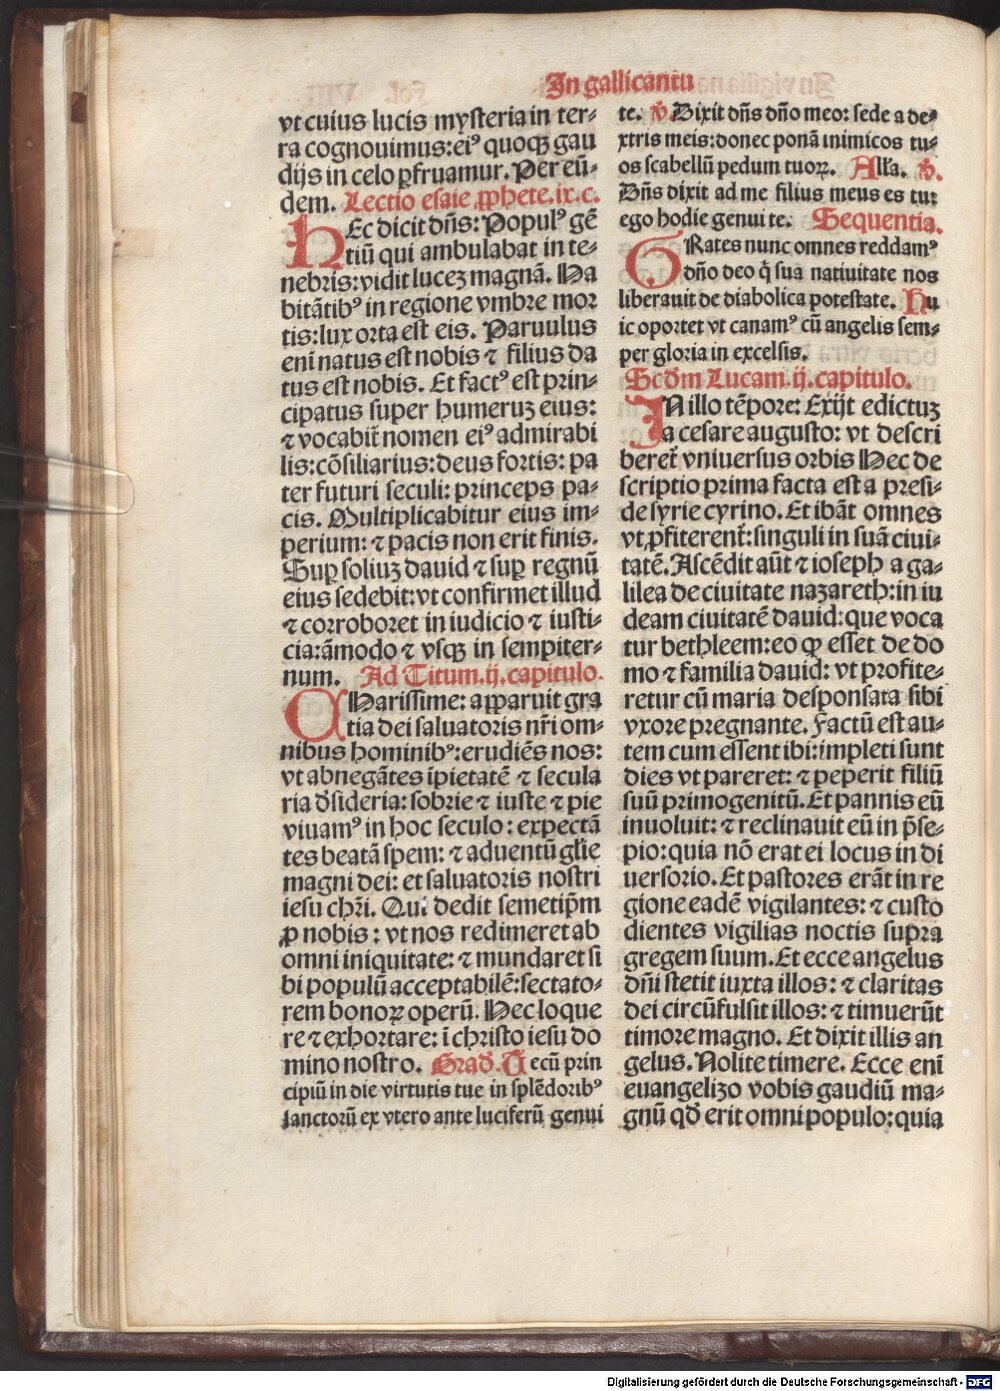 In gallicantu
vt cuius lucis mysteria in ter⸗
ra cognouimus: eiꝰ quoqꝫ gau
dijs in celo ꝑfruamur. Per eū⸗
dem. Lectio esaie ꝓphete. ix. c.
HEc dicit dn̄s: Populꝰ gē
tiū qui ambulabat in te⸗
nebris: vidit lucez magnā. Ha
bitātibꝰ in regione vmbre mor
tis: lux orta est eis. Paruulus
enī natus est nobis ⁊ filius da
tus est nobis. Et factꝰ est prin⸗
cipatus super humeruz eius:
⁊ vocabit̄ nomen eiꝰ admirabi
lis: cōsiliarius: deus fortis: pa
ter futuri seculi: princeps pa⸗
cis. Multiplicabitur eius im⸗
perium: ⁊ pacis non erit finis.
Suꝑ soliuz dauid ⁊ suꝑ regnū
eius sedebit: vt confirmet illud
⁊ corroboret in iudicio ⁊ iusti⸗
cia: āmodo ⁊ vsqꝫ in sempiter⸗
num. Ad Titum. ij. capitulo.
CHarissime: aꝓparuit gra
tia dei saluatoris nr̄i om⸗
nibus hominibꝰ: erudiēs nos:
vt abnegātes īpietatē ⁊ secula
ria d̄sideria: sobrie ⁊ iuste ⁊ pie
viuamꝰ in hoc seculo: expectā
tes beatā spem: ⁊ aduentū gl̄ie
magni dei: et saluatoris nostri
iesu chr̄i. Qui dedit semetip̄m
ꝓ nobis: vt nos redimeret ab
omni iniquitate: ⁊ mundaret si
bi populū acceptabilē: sectato⸗
rem bonoꝝ operū. Hec loque
re ⁊ exhortare: ī christo iesu do
mino nostro. Grad̄. Tecū prin
cipiū in die virtutis tue in splēdoribꝰ
sanctorū ex vtero ante luciferū genui
te. v̄. Dixit dn̄s dn̄o meo: sede a de⸗
xtris meis: donec ponā inimicos tu⸗
os scabellū pedum tuoꝝ. All̄a. v̄.
Dn̄s dixit ad me filius meus es tu:
ego hodie genui te. Sequentia.
GRates nunc omnes reddamꝰ
dn̄o deo q̄ sua natiuitate nos
liberauit de diabolica potestate. Hu
ic oportet vt canamꝰ cū angelis sem⸗
per gloria in excelsis.
Scd̄m Lucam. ij. capitulo.
IN illo tēpore: Exijt edictuz
a cesare augusto: vt descri
beret̄ vniuersus orbis Hec de
scriptio prima facta est a presi⸗
de syrie cyrino. Et ibāt omnes
vt ꝓfiterent̄: singuli in suā ciui⸗
tatē. Ascēdit aūt ⁊ ioseph a ga⸗
lilea de ciuitate nazareth: in iu
deam ciuitatē dauid: que voca
tur bethleem: eo ꝙ esset de do
mo ⁊ familia dauid: vt profite⸗
retur cū maria desponsata sibi
vxore pregnante. Factū est au⸗
tem cum essent ibi: impleti sunt
dies vt pareret: ⁊ peperit filiū
suū primogenitū. Et pannis eū
inuoluit: ⁊ reclinauit eū in p̄se⸗
pio: quia nō erat ei locus in di
uersorio. Et pastores erāt in re
gione eadē vigilantes: ⁊ custo
dientes vigilias noctis supra
gregem suum. Et ecce angelus
dn̄i stetit iuxta illos: ⁊ claritas
dei circūfulsit illos: ⁊ timuerūt
timore magno. Et dixit illis an
gelus. Nolite timere. Ecce enī
euangelizo vobis gaudiū ma⸗
gnū qd̄ erit omni populo: quia
Digitalisierung gefördert durch die Deutsche Forschungsgemeinschaft - DFG